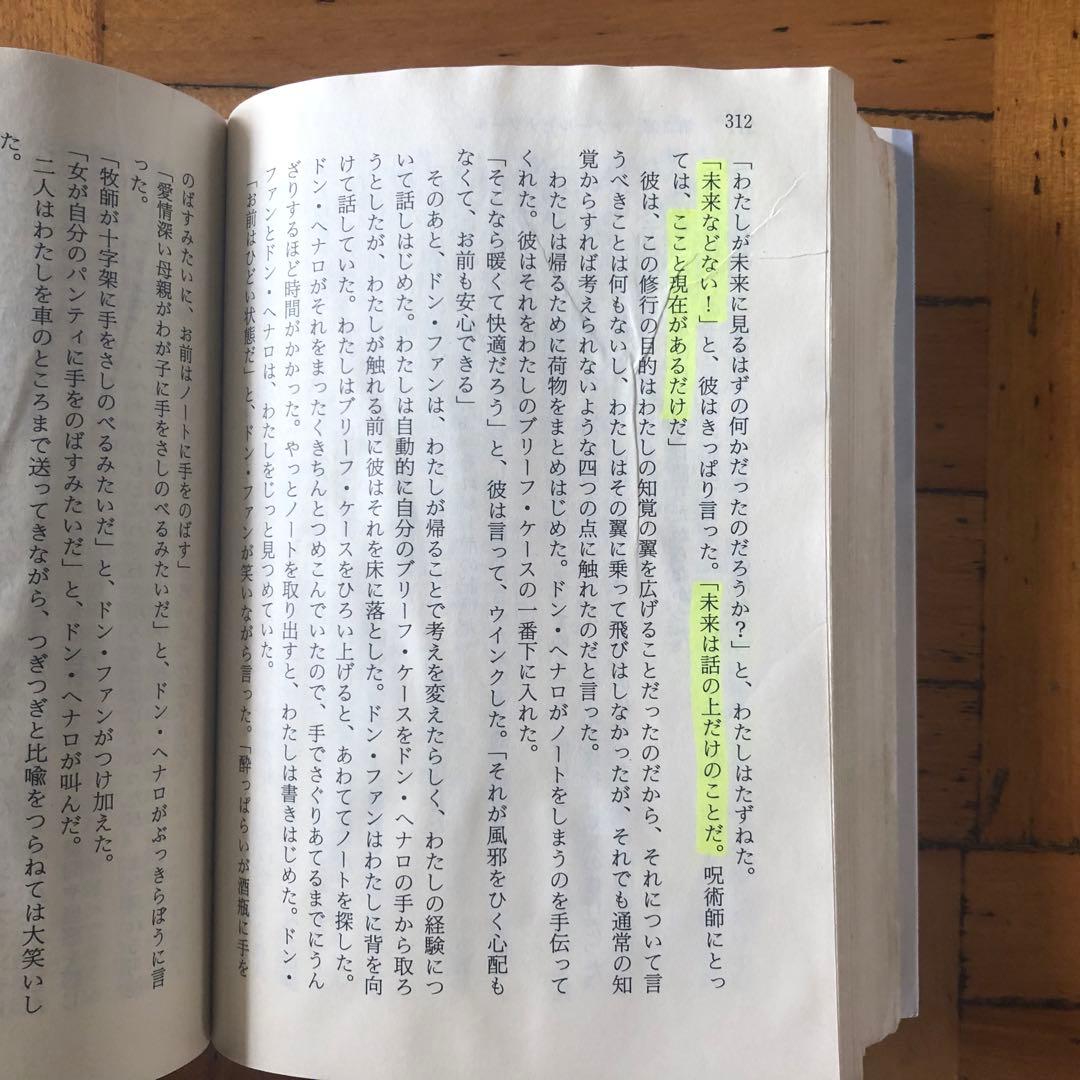 312
「わたしが未来に見るはずの何かだったのだろうか？」と、わたしはたずねた。
「未来などない！」と、彼はきっぱり言った。「未来は話の上だけのことだ。呪術師にとっ
ては、ここと現在があるだけだ」
彼は、この修行の目的はわたしの知覚の翼を広げることだったのだから、それについて言
うべきことは何もないし、わたしはその翼に乗って飛びはしなかったが、それでも通常の知
覚からすれば考えられないような四つの点に触れたのだと言った。
わたしは帰るために荷物をまとめはじめた。ドン・ヘナロがノートをしまうのを手伝って
くれた。彼はそれをわたしのブリーフ・ケースの一番下に入れた。
「そこなら暖くて快適だろう」と、彼は言って、ウインクした。「それが風邪をひく心配も
なくて、お前も安心できる」
そのあと、ドン・ファンは、わたしが帰ることで考えを変えたらしく、わたしの経験につ
いて話しはじめた。わたしは自動的に自分のブリーフ・ケースをドン・ヘナロの手から取ろ
うとしたが、わたしが触れる前に彼はそれを床に落とした。ドン・ファンはわたしに背を向
けて話していた。わたしはブリーフ・ケースをひろい上げると、あわててノートを探した。
ドン・ヘナロがそれをまったくきちんとつめこんでいたので、手でさぐりあてるまでにうん
ざりするほど時間がかかった。やっとノートを取り出すと、わたしは書きはじめた。ドン・
ファンとドン・ヘナロは、わたしをじっと見つめていた。
「お前はひどい状態だ」と、ドン・ファンが笑いながら言った。「酔っぱらいが酒瓶に手を
のばすみたいに、お前はノートに手をのばす」
「愛情深い母親がわが子に手をさしのべるみたいだ」と、ドン・ヘナロがぶっきらぼうに言
った。
「牧師が十字架に手をさしのべるみたいだ」と、ドン・ファンがつけ加えた。
「女が自分のパンティに手をのばすみたいだ」と、ドン・ヘナロが叫んだ。
二人はわたしを車のところまで送ってきながら、つぎつぎと比喩をつらねては大笑いし
た。